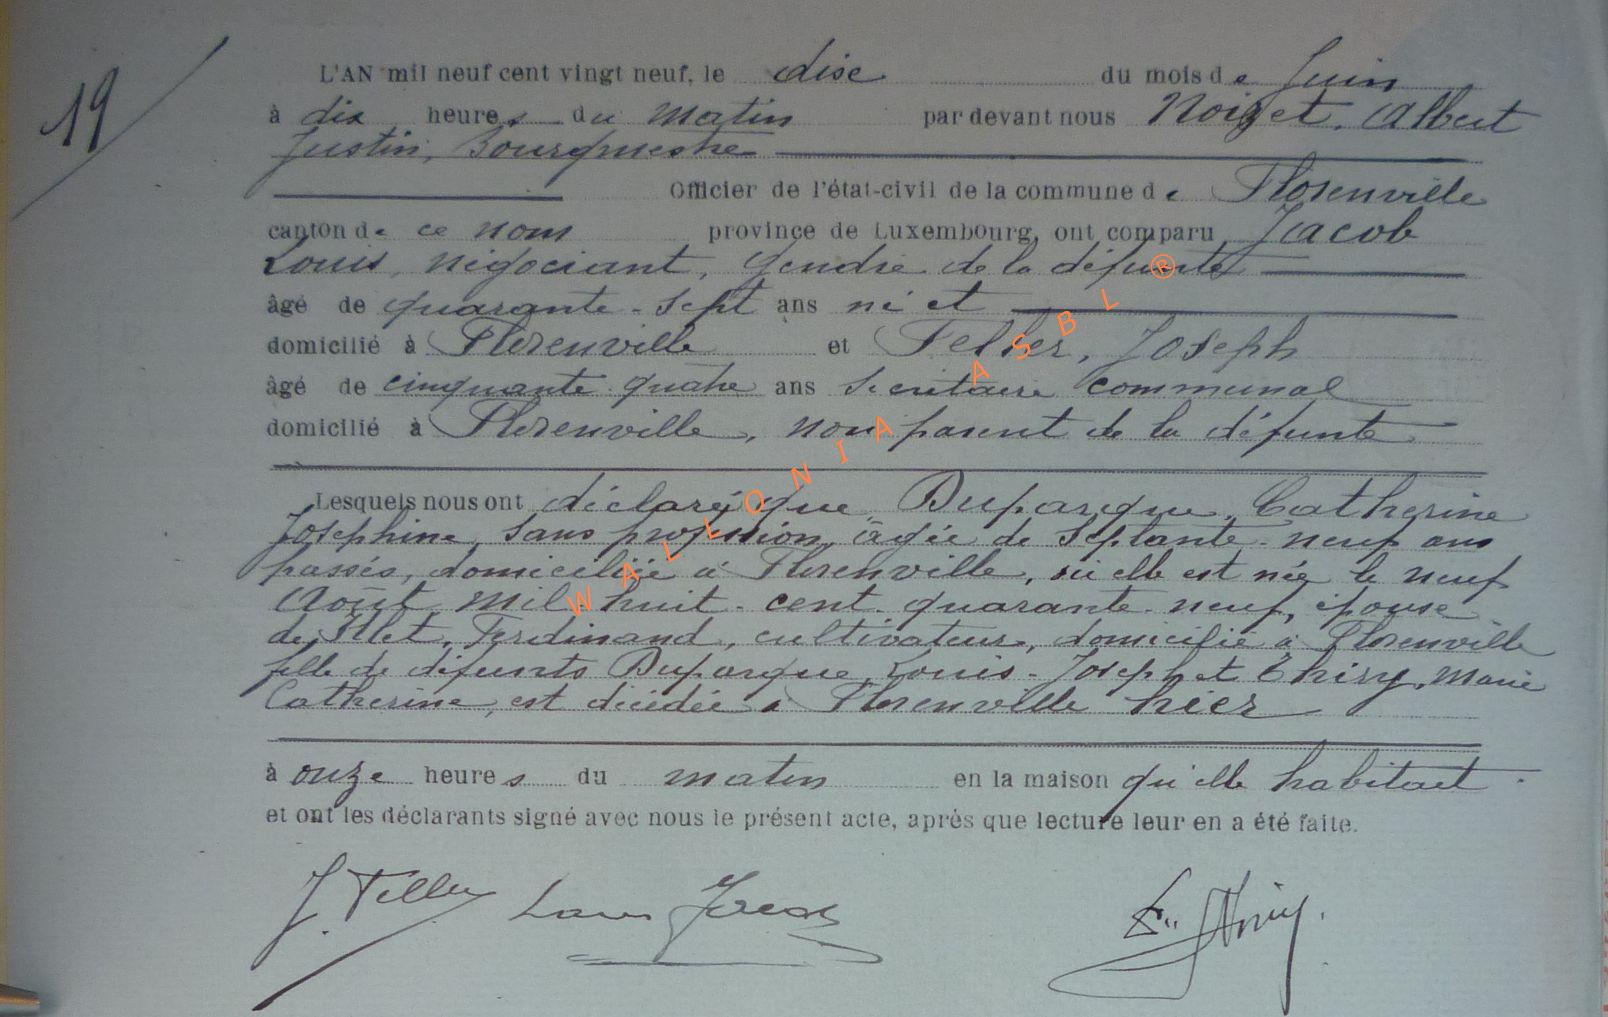 19
L'AN mil neuf cent vingt neuf, le dise du mois de Juin
à dix heures du Matin par devant nous Noizet, Albert
Justin, Bourgmestre
Officier de l'état-civil de la commune de Florenville
canton de ce nom province de Luxembourg, ont comparu Jacob
Louis, négociant, gendre de la défunte
âgé de quarante-sept ans né et
domicilié à Florenville et Feller, Joseph
âgé de cinquante quatre ans secrétaire communal
domicilié à Florenville, non parent de la défunte
Lesquels nous ont déclaré que Duparque, Catherine
Joséphine, sans profession, âgée de septante-neuf ans
passés, domiciliée à Florenville, où elle est née le neuf
Août mil-huit-cent-quarante-neuf, épouse
de Filet, Ferdinand, cultivateur, domicilié à Florenville
fille de défunts Duparque, Louis-Joseph et Thiry, Marie
Catherine, est décédée à Florenville hier
à onze heures du matin en la maison qu'elle habitait
et ont les déclarants signé avec nous le présent acte, après que lecture leur en a été faite.
J. Feller Louis Jacob
WALLONIA ASBL ®